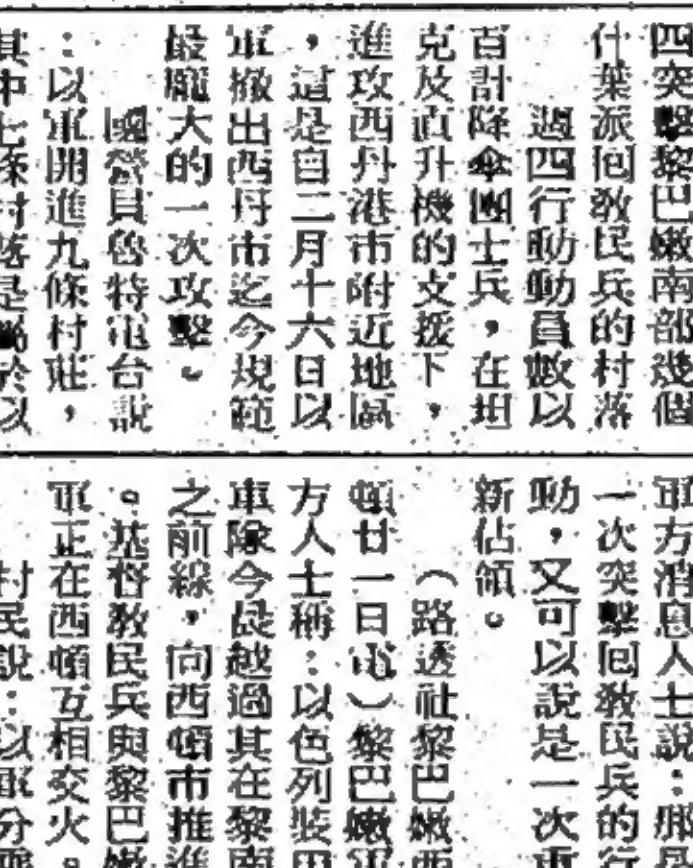 四突擊黎巴嫩南部幾個
什葉派囘敎民兵的村落
週四行動動員數以
百計降傘團士兵，在坦
克及直升機的支援下，
進攻西丹港市附近地區
，這是自二月十六日以
軍撤出西丹市迄今規範
最龐大的一次攻擊。
國營貝魯特電台說
：以軍開進九條村莊，
其中七條村落是屬於以
軍方消息人士說：那是
一次突擊囘敎民兵的行
動，又可以說是一次重
新佔領。
（路透社黎巴嫩西
頓廿一日電）黎巴嫩軍
方人士稱：以色列裝甲
車隊今晨越過其在黎南
之前線，向西頓市推進
。基督敎民兵與黎巴嫩
軍正在西頓互相交火。
村民說：以軍分乘